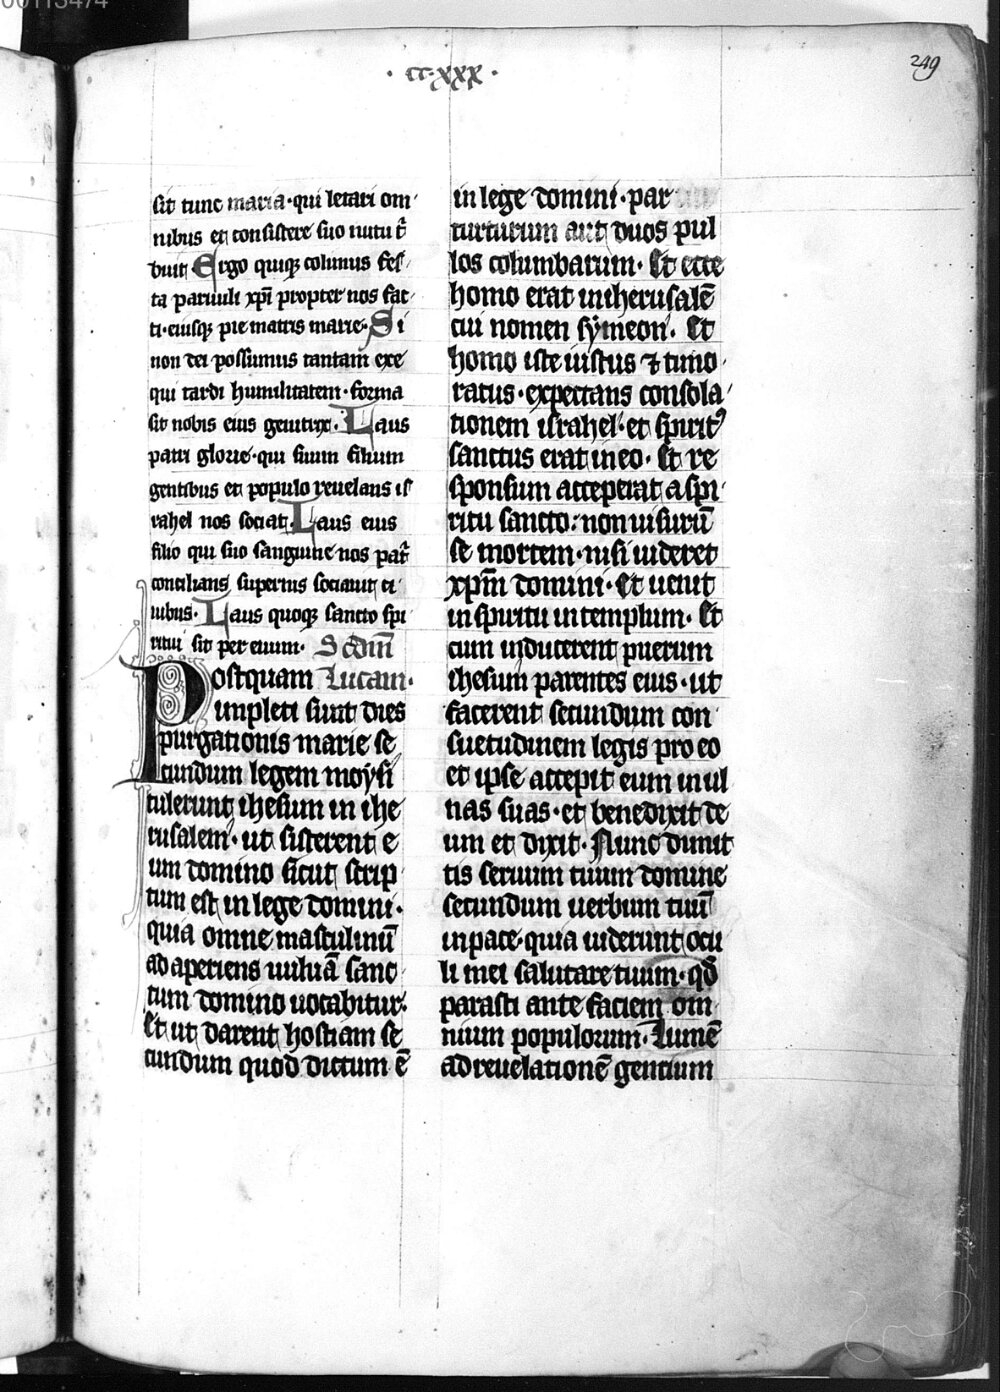 00113474
· cc·xxx ·
249
sit tunc maria·qui letari om
nibus et consistere suo nutu t̄
buit Ergo quiqꝫ colimus fes
ta paruuli xp̄i propter nos fac
ti·eiusqꝫ pie matris marie· Si
non dei possumus tantam exe
qui tardi humilitatem·forma
sit nobis eius genitrix· Laus
patri glorie·qui suum filium
gentibus et populo reuelans is
rahel nos sociat· Laus eius
filio qui suo sanguine nos pat̄
concilians supernis sociauit ci
uibus· Laus quoqꝫ sancto spi
ritui sit per euum· Scdm̄
Postquam Lucam·
impleti sunt dies
purgationis marie se
cundum legem moysi
tulerunt ihesum in ihe
rusalem· ut sisterent e
um domino sicut scrip
tum est in lege domini·
quia omne masculinū
adaperiens uuluā sanc
tum domino uocabitur·
Et ut darent hostiam se
cundum quod dictum ē
in lege domini·par
turturum aut duos pul
los columbarum· Et ecce
homo erat in iherusalē
cui nomen symeon· Et
homo iste iustus ⁊ timo
ratus·expectans consola
tionem israhel·et spiritꝰ
sanctus erat in eo· Et re
sponsum acceperat a spi
ritu sancto·non uisurū
se mortem·nisi uideret
xp̄m domini·Et uenit
in spiritu in templum· Et
cum inducerent puerum
ihesum parentes eius·ut
facerent secundum con
suetudinem legis pro eo
et ipse accepit eum in ul
nas suas·et benedixit de
um et dixit·Nunc dimit
tis seruum tuum domine
secundum uerbum tuū
in pace·quia uiderunt ocu
li mei salutare tuum·qd̄
parasti ante faciem om
nium populorum·Lumē
ad reuelationē gentium